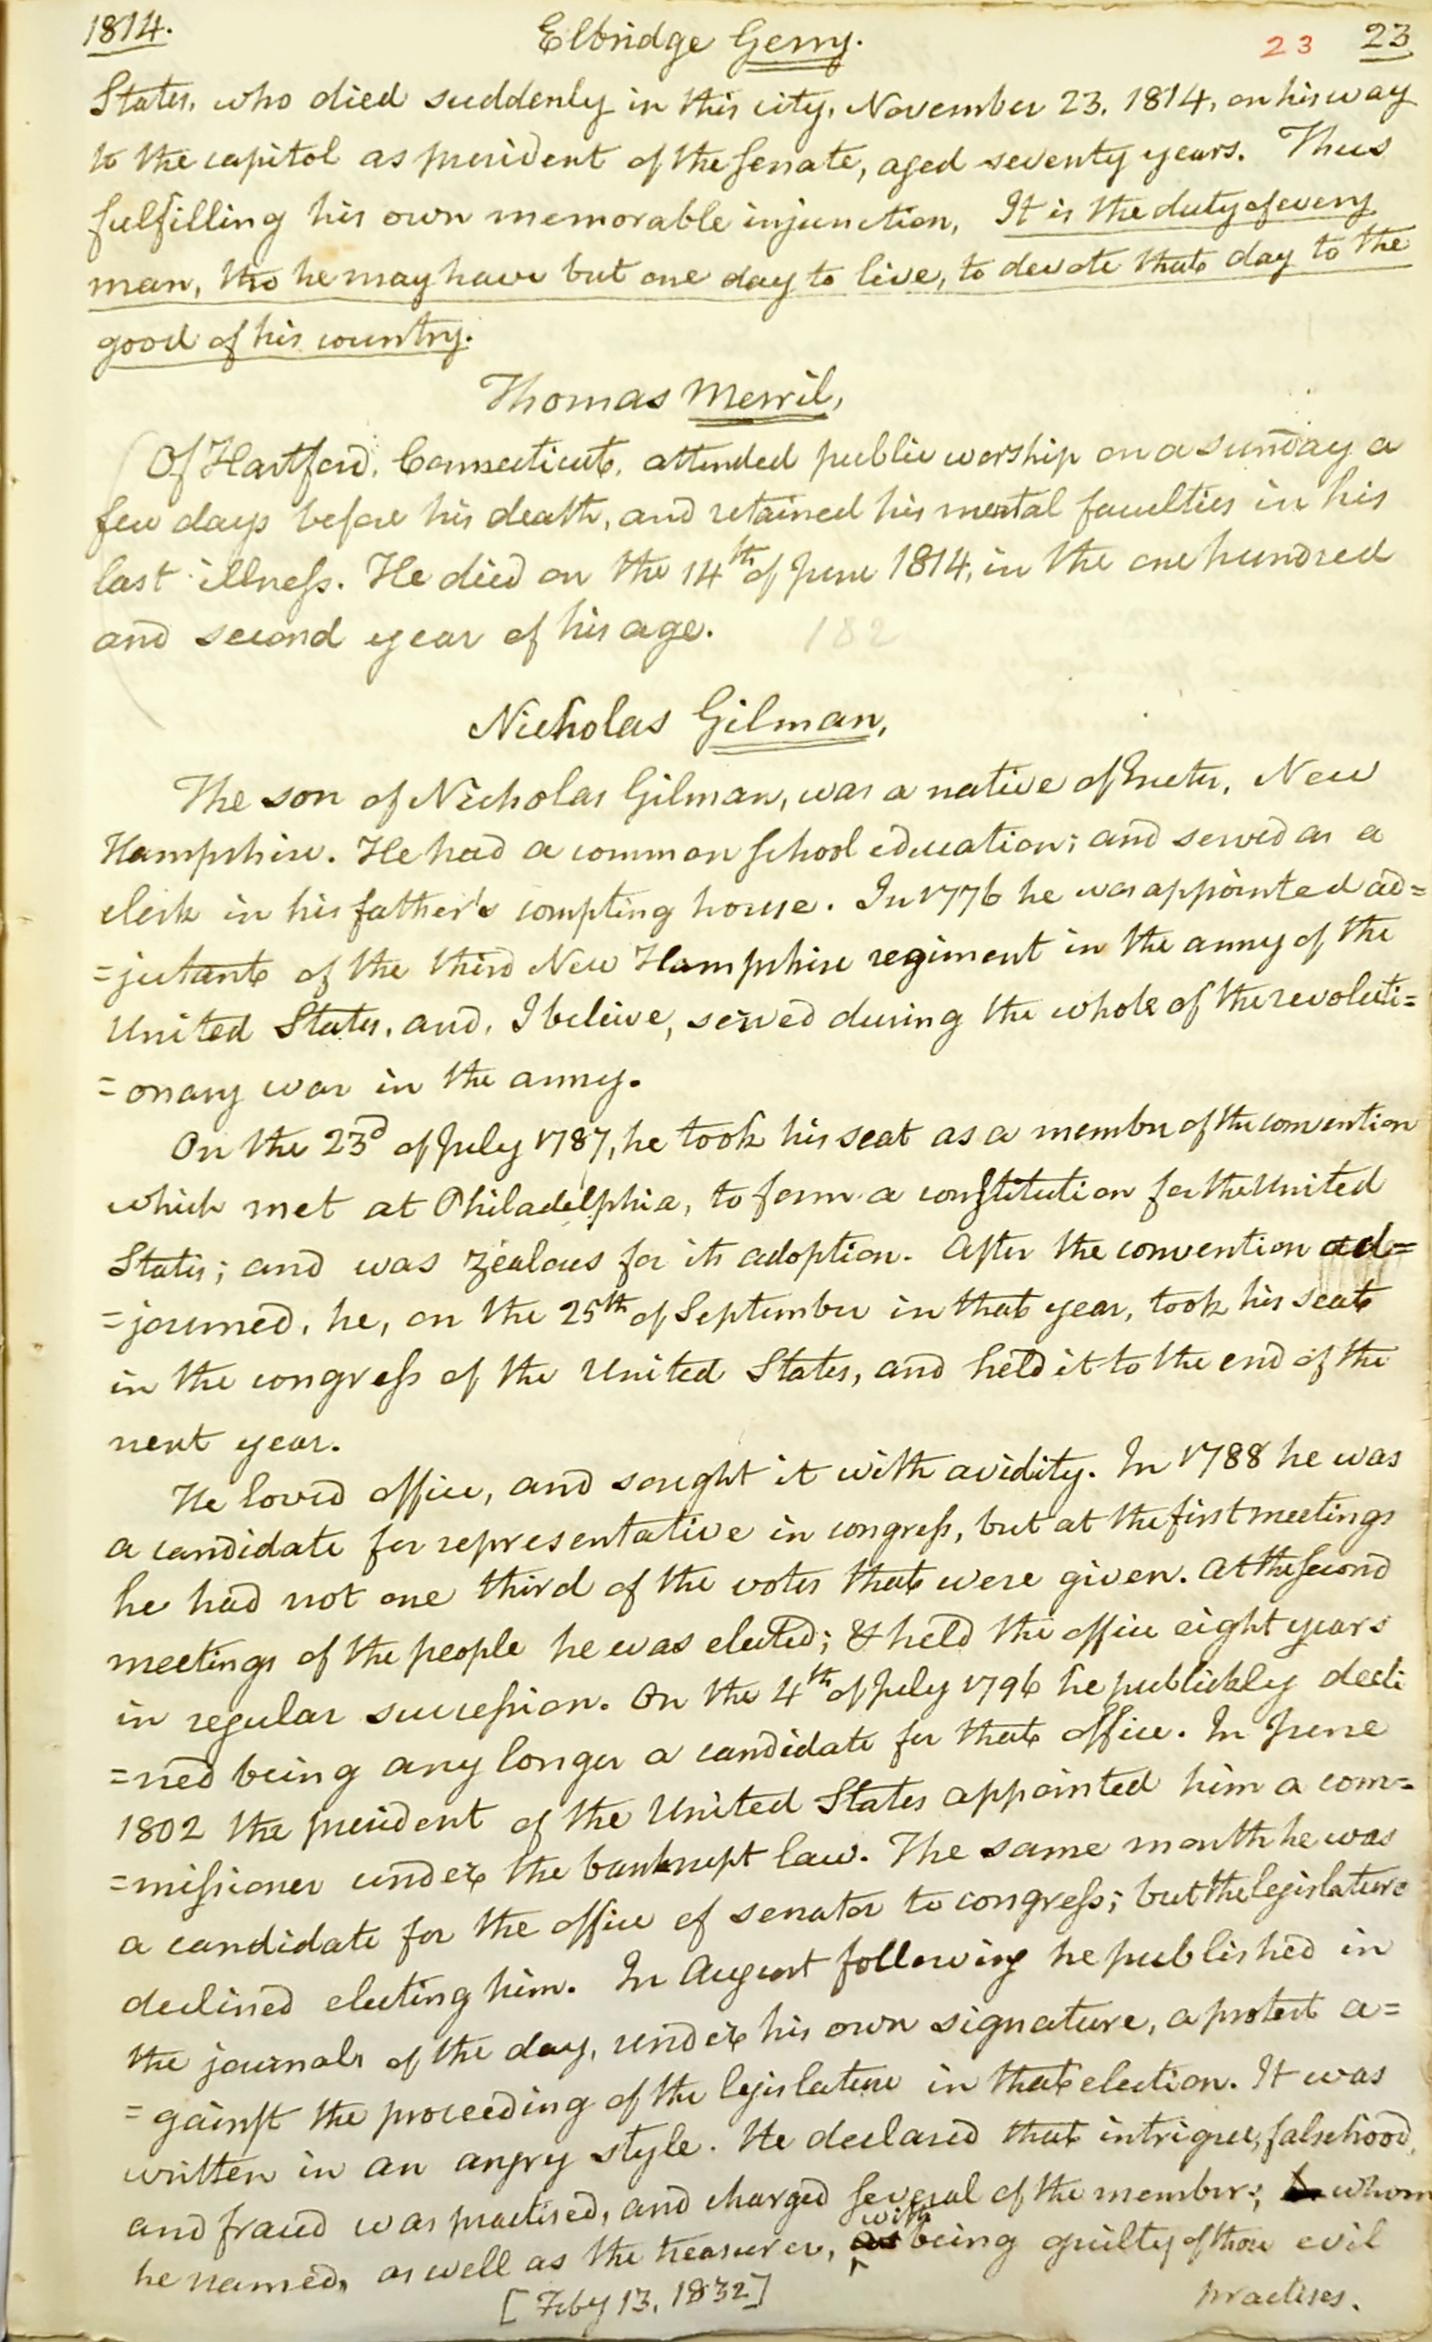 1814. Elbridge Gerry. 23 23
States, who died suddenly in this city, November 23, 1814, on his way
to the capitol as president of the Senate, aged seventy years. Thus
fulfilling his own memorable injunction, It is the duty of every
man, tho he may have but one day to live, to devote that day to the
good of his country.
Thomas Merril,
Of Hartford, Connecticut, attended public worship on a sunday a
few days before his death, and retained his mental faculties in his
last illness. He died on the 14th of June 1814, in the one hundred
and second year of his age. 182
Nicholas Gilman,
The son of Nicholas Gilman, was a native of Exeter, New
Hampshire. He had a common school education; and served as a
clerk in his father's compting house. In 1776 he was appointed ad=
=jutant of the third New Hampshire regiment in the army of the
United States, and, I believe, served during the whole of the revoluti=
=onary war in the army.
On the 23d of July 1787, he took his seat as a member of the convention
which met at Philadelphia, to form a constitution for the United
States; and was zealous for its adoption. After the convention ad=
=journed, he, on the 25th of September in that year, took his seat
in the congress of the United States, and held it to the end of the
next year.
He loved office, and sought it with avidity. In 1788 he was
a candidate for representative in congress, but at the first meetings
he had not one third of the votes that were given. At the second
meetings of the people he was elected; & held the office eight years
in regular succession. On the 4th of July 1796 he publickly decli
=ned being any longer a candidate for that office. In June
1802 the president of the United States appointed him a com=
=missioner under the bankrupt law. The same month he was
a candidate for the office of senator to congress; but the legislature
declined electing him. In August following he published in
the journals of the day, under his own signature, a protest a=
=gainst the proceeding of the legislature in that election. It was
written in an angry style. He declared that intrigue, falsehood,
and fraud was practised, and charged several of the members, whom
he named, as well as the treasurer, as with being guilty of those evil
[Feby 13, 1832] practises.